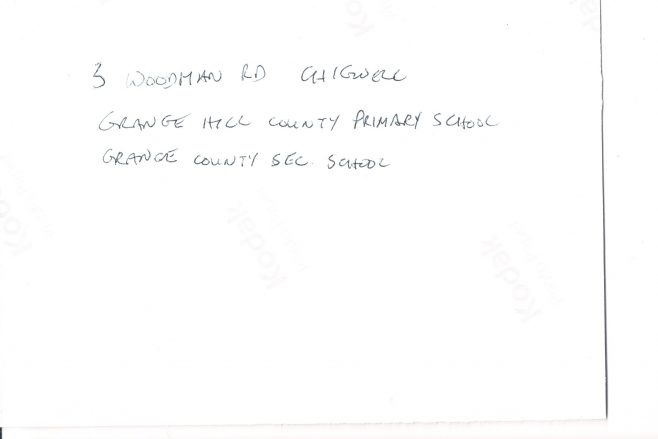 3 WOODMAN RD CHIGWELL
GRANGE HILL COUNTY PRIMARY SCHOOL
GRANGE COUNTY SEC. SCHOOL
Kodak
Kodak
Kodak